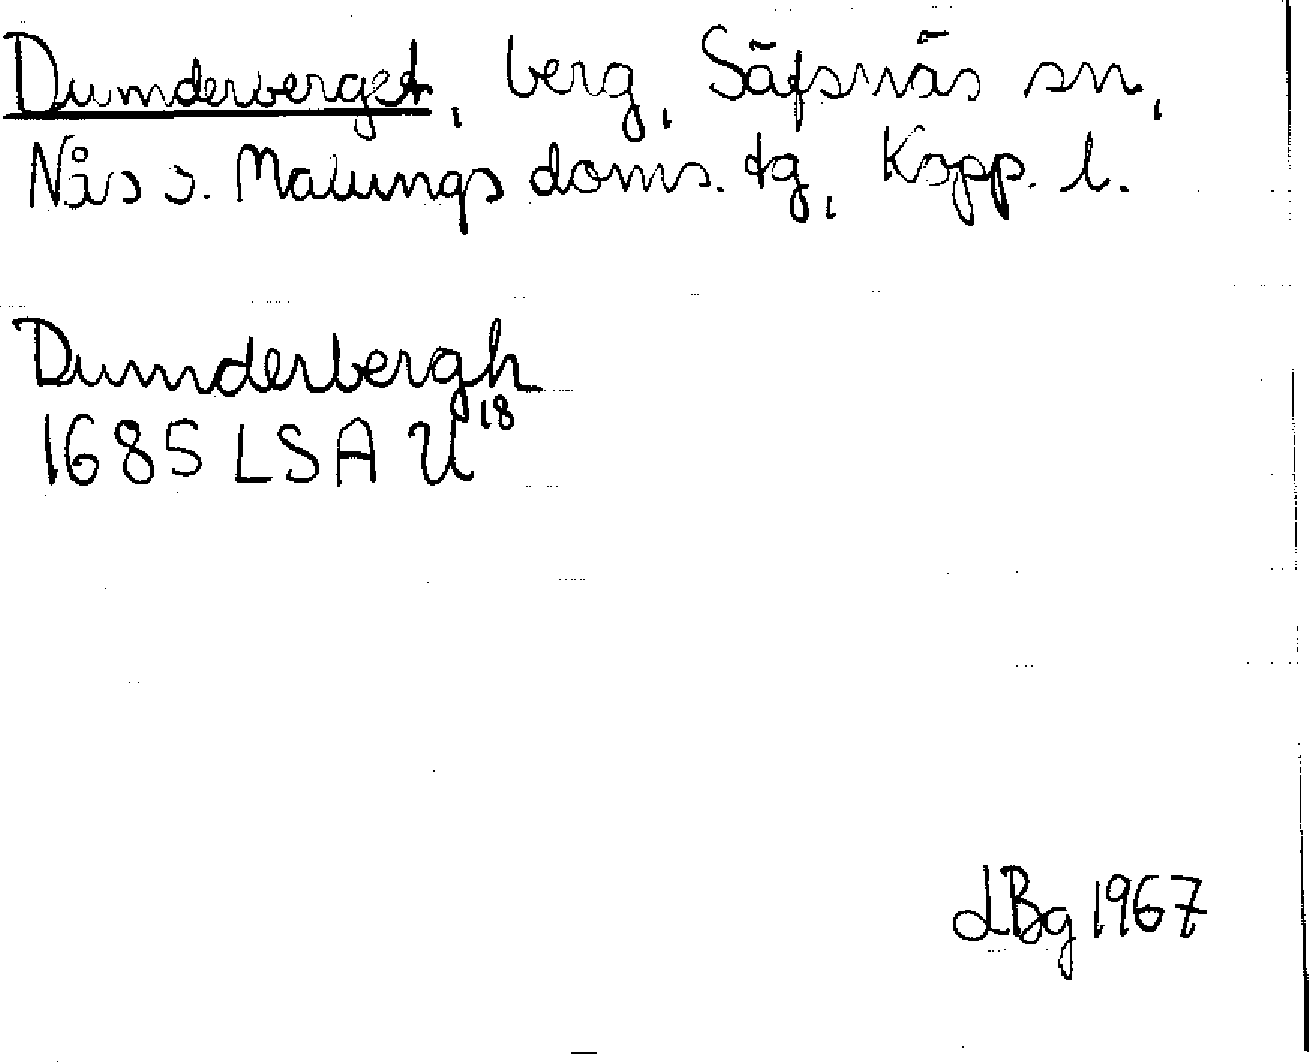 Dumderberget, berg, Säfsnäs sn,
Nås o. Malungs doms. tg, Kopp. l.
Dumderbergh
1685 LSA U18
LBg 1967